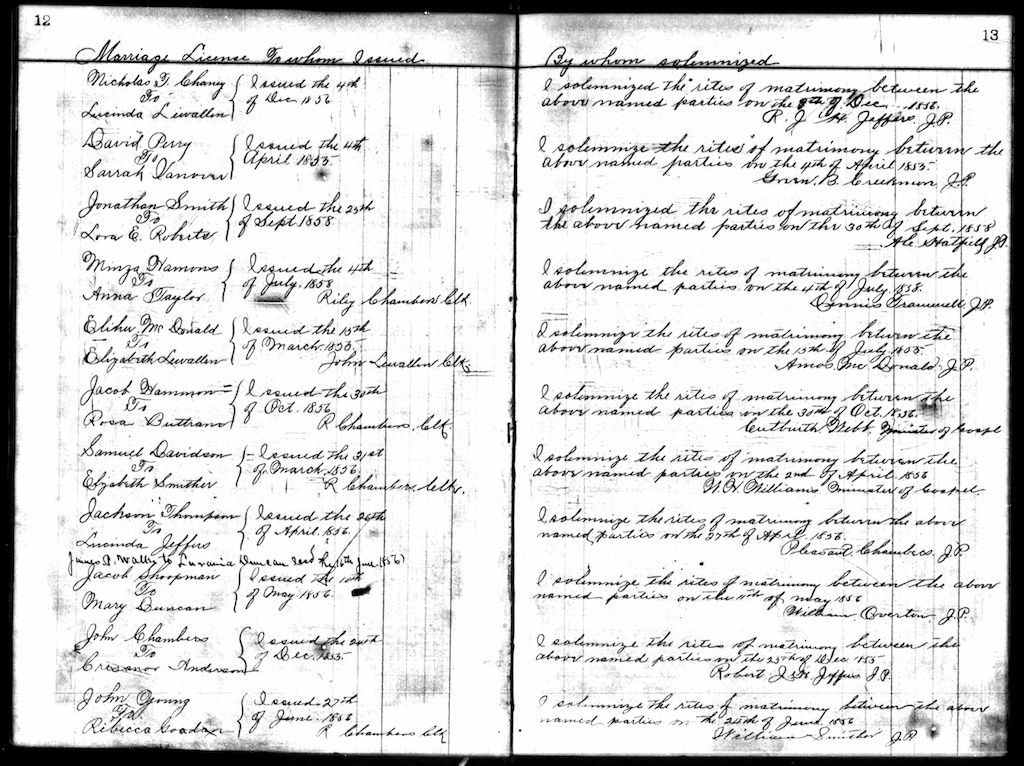 12
Marriage License To whom Issued
Nicholas T. Chany
To
Lucinda Lewallen
Issued the 4th
of Dec 1856
David Perry
To
Sarrah Vanover
Issued the 4th
April 1855
Jonathan Smith
To
Lova E. Roberts
Issued the 25th
of Sept 1858
Minza Hamons
To
Anna Taylor
Issued the 4th
of July 1858
Riley Chambers Clk
Elihu Mc Donald
To
Elizabeth Lewallen
Issued the 15th
of March 1855
John Lewallen Clk
Jacob Hammon=
To
Rosa Buttram
Issued the 30th
of Oct. 1856
R Chambers, Clk
Samuel Davidson
To
Elzabeth Smither
Issued the 31st
of March 1856
R Chambers Clk.
Jackson Thompson
To
Lucinda Jeffers
Issued the 26th
of April 1856
James A. to Luvania Duncan 16th June 1856)
Jacob Shoopman
To
Mary Duncan
Issued the 10th
of May 1856
John Chambers
To
Anderson
Issued the 24th
of Dec. 1855
John Young
To
Rebecca
Issued 27th
of June 1856
R Chambers Clk
13
By whom solemnized
I solemnized the rites of matrimony between the
above named parties on the of Dec 1856.
R. J. H. Jeffers, J.P.
I solemnize the rites of matrimony between the
above named parties on the 4th of April 1855.
B. Creekmore J.P.
I solemnized the rites of matrimony between
the above named parties on the 30th of Sept. 1858
Ale Hatfield, J.P.
I solemnize the rites of matrimony between the
above named parties on the 4th of July 1858.
Dennis Trammell, J.P.
I solemnize the rites of matrimony between the
above named parties on the 15th of July 1855.
Amos Mc Donald J.P.
I solemnize the rites of matrimony between the
above named parties on the 30th of Oct. 1856.
Cutburth Webb, Minister of Gospel
I solemnize the rites of matrimony between the
above named parties on the 2nd of April 1856
W.H. Williams minister of Gospel.
I solemnize the rites of matrimony between the above
named parties on the 27th of April 1856.
Pleasant Chambers, J.P.
I solemnize the rites of matrimony between the above
named parties on the 11th of may 1856
William Overton J.P.
I solemnize the rites of matrimony between the
above named parties on the 25th of Dec 1855
Robert J H Jeffers J.P.
I solemnize the rites of matrimony between the above
named parties on the 28th of June 1856
William Smither J.P.